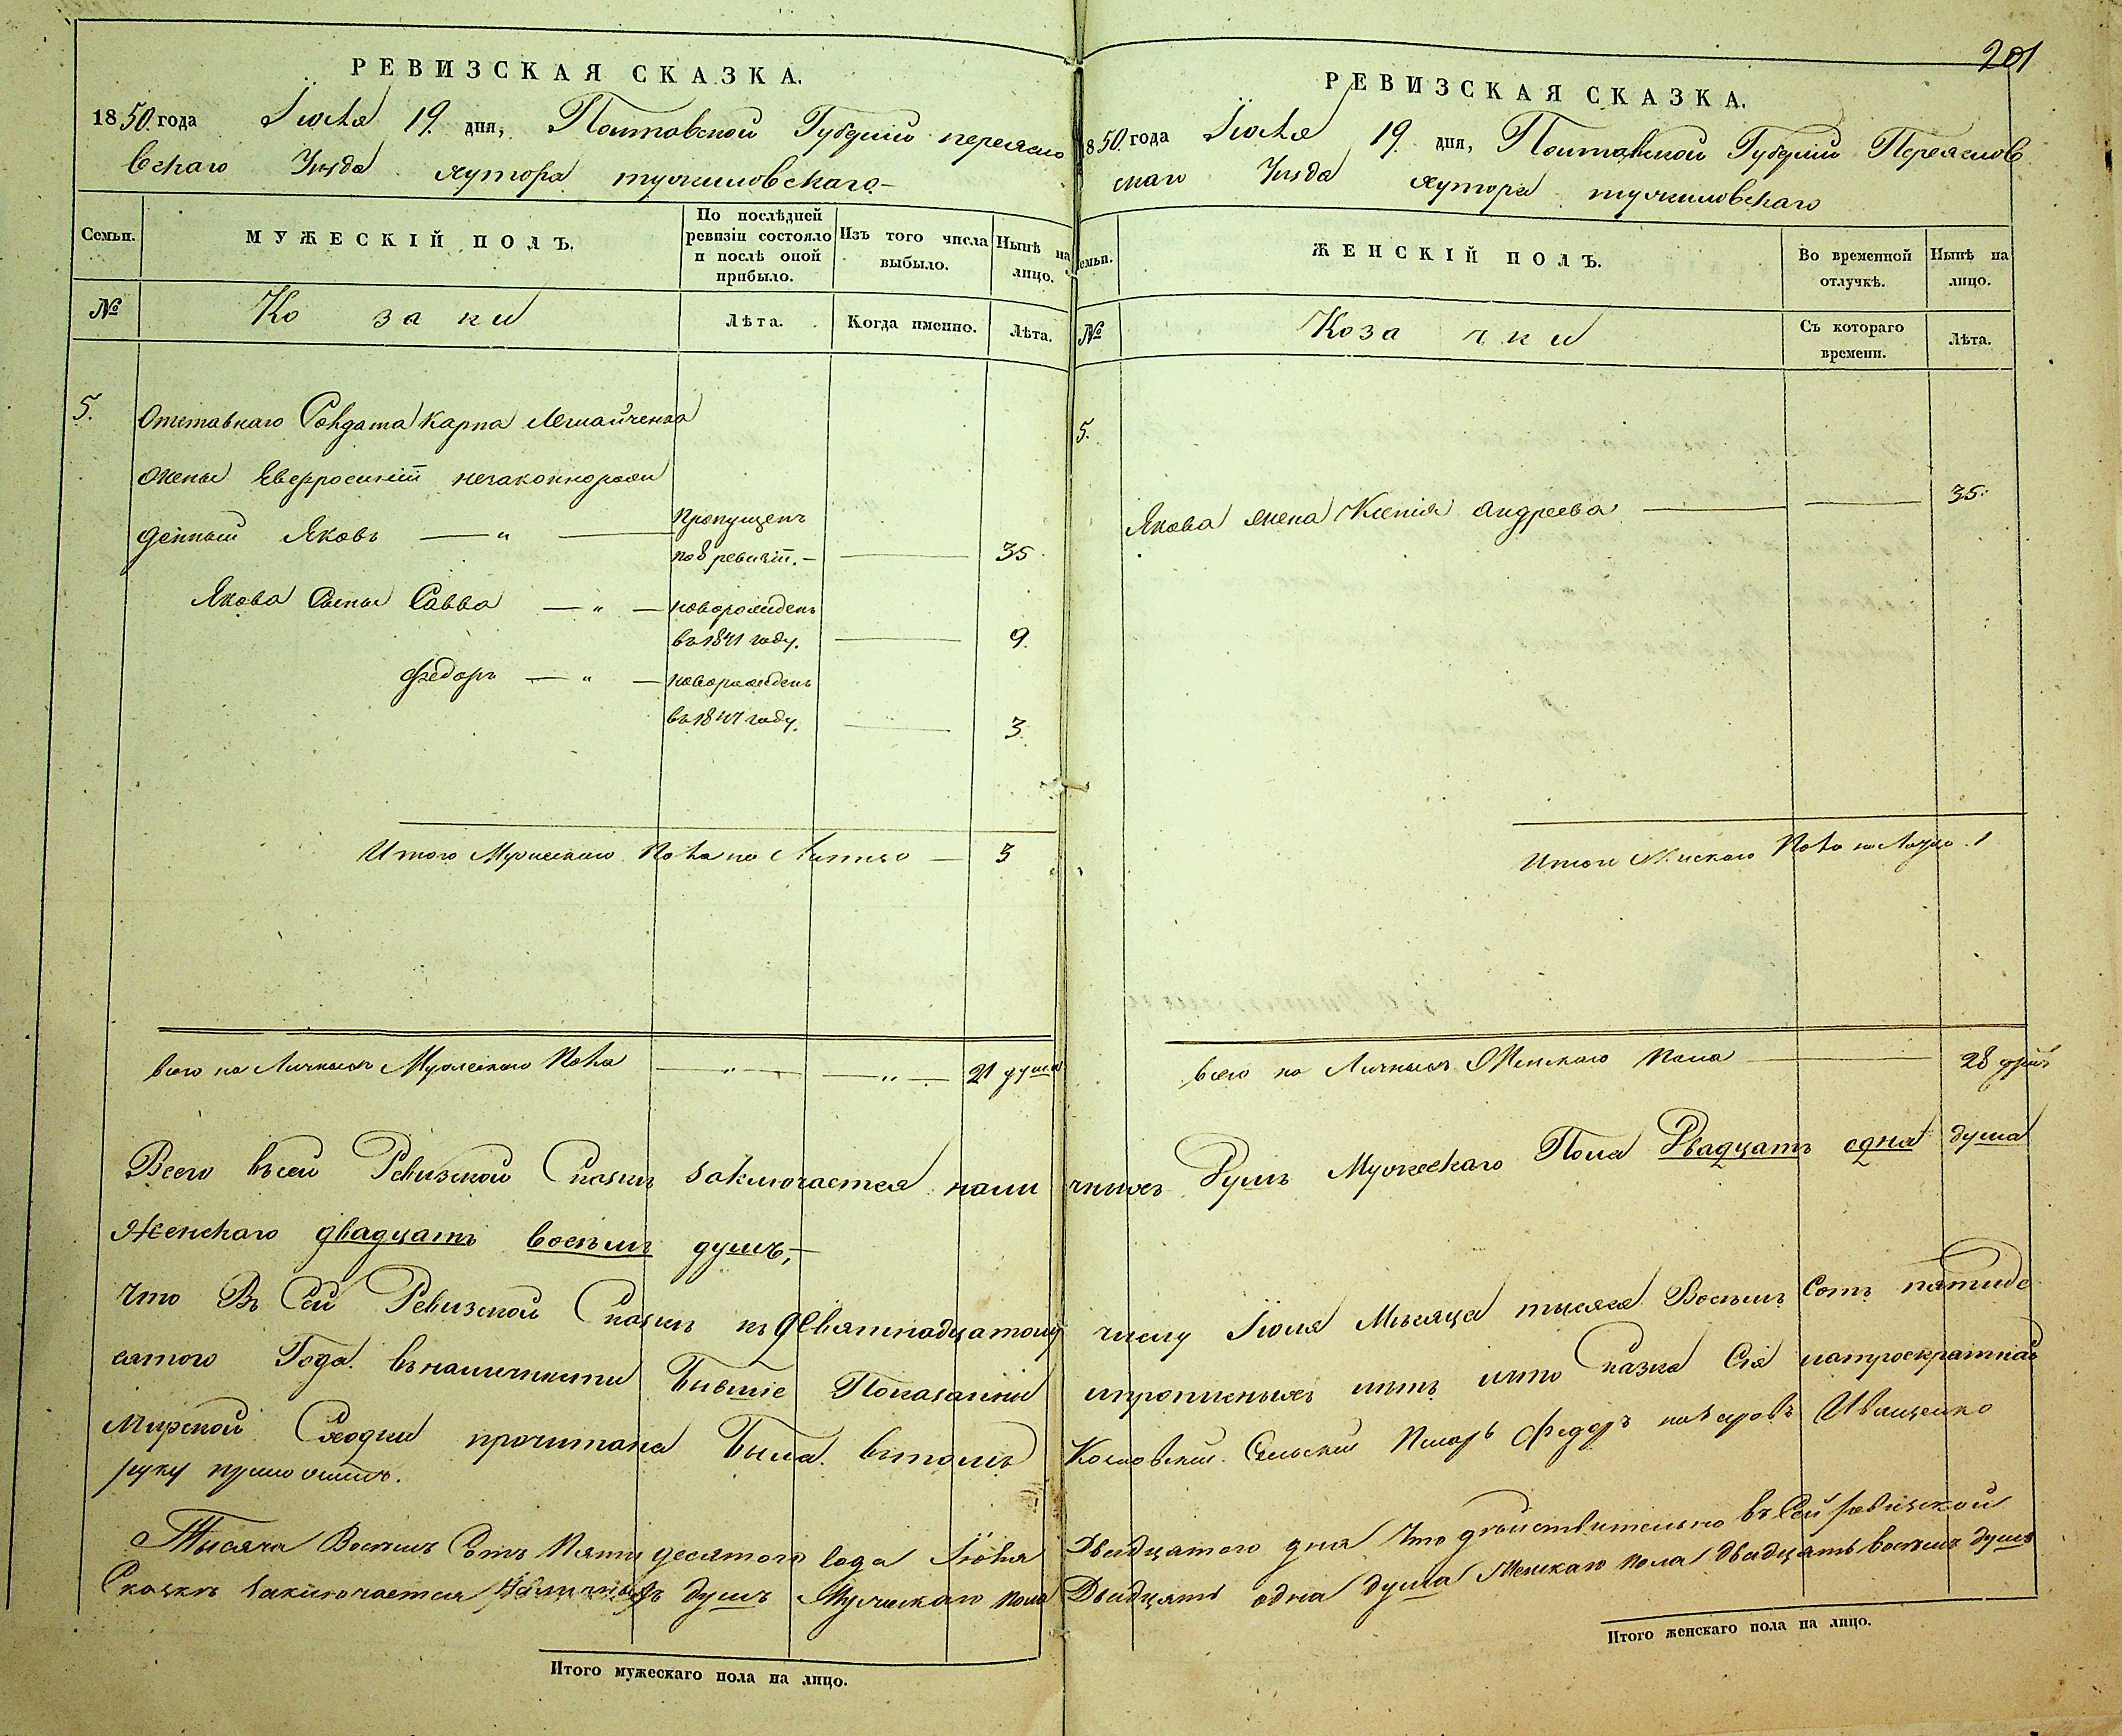 РЕВИЗСКАЯ СКАЗКА.
1850 года Іюля 19 дня, Полтавской Губерніи переясло
вскаго Уезда хутора
Семьи.
МУЖЕСКІЙ ПОЛЪ.
По послѣдней ревизіи состояло и послѣ оной прибыло.
Изъ того числа выбыло.
Нынѣ на лицо.
№
Козаки
Лѣта.
Когда именно.
Лѣта.
5.
Отставнаго Солдата Карпа
жены незаконнорож
денный Яковъ — „ —
Пропущенъ
по 8 ревизіи. —
35
Якова Сыны Савва — „ —
новорожденъ
въ 1841 году.
9.
Федоръ — „ —
новорожденъ
въ 1847 году.
3.
Итого Мужескаго Пола на Лицо — 3
всего на Личныхъ Мужескаго Пола — „ — — „ — 21 душа
201
РЕВИЗСКАЯ СКАЗКА.
1850 года Іюля 19 дня, Полтавской Губерніи Переяслов
скаго Уезда хутора
Семьи.
ЖЕНСКІЙ ПОЛЪ.
Во временной отлучкѣ.
Нынѣ на лицо.
№
Козачки
Съ котораго времени.
Лѣта.
5.
Якова жена Ксенія Андреева — — 35.
Итого Женскаго Пола на Лицо. 1
всего на Личныхъ Женскаго пола — 28 душъ
Всего въ сей Ревизской Сказкѣ заключается наличныхъ Душъ Мужескаго Пола Двадцать одна душа
Женскаго двадцать восемь душъ, —
Что Въ Сей Ревизской Сказкѣ къ девятнадцатому числу Іюля Мѣсяца тысяча Восемь Сотъ пятиде
сятого Года. въ наличности Бывшіе Показанни ипрописныхъ нѣтъ ичто Сказка Сія
Мирской Сходки прочитана Была. вътомъ Сельский Писарь Федоръ Иващенко
руку приложилъ.
Тысяча Восемь Сотъ Пятидесятого Года Іюля Двадцатого дня Что дѣйствительно въ Сей ревизской
Сказкѣ Заключается Наличныхъ душъ Мужескаго пола Двадцать одна душа Женскаго пола двадцать восемь душъ
Итого мужескаго пола на лицо.
Итого женскаго пола на лицо.